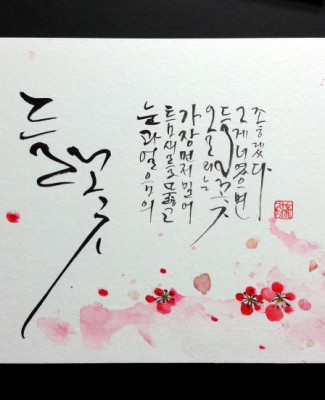 들꽃
눈과얼음의
틈새를뚫고
가장먼저밀어
올리는
들꽃
그게너였으면
좋겠다.